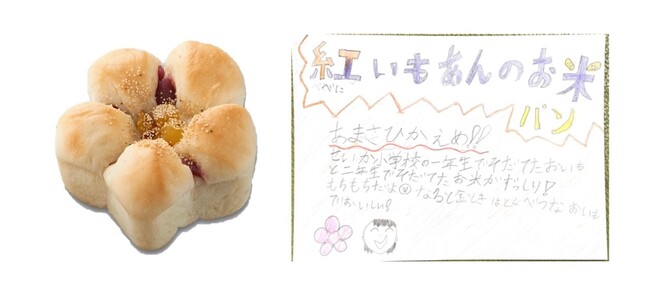 紅いもあんのお米
べに
パン
あまさひかえめ!!
さいか小学校の一年生でそだてたおいも
と二年生でそだてたお米がずっしり!
もちもちだよ なると金ときはとくべつな おいも
でおいしい!